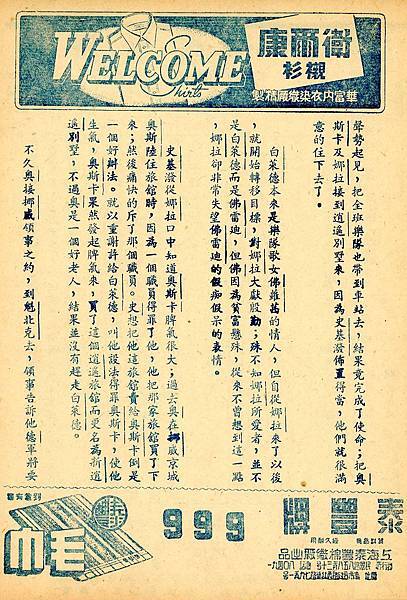 衛爾康
襯衫
華富內衣染織廠精製
WELCOME
Shirts
聲勢起見,把全班樂隊也帶到車站去,結果竟完成了使命;把奧
斯卡及娜拉接到逍遙別墅來,因為史基潑佈置得當,他們就很滿
意的住下去了。
白萊德本來是樂隊歌女佛蘿茜的情人,但自從娜拉來了以後
,就開始轉移目標,對娜拉大獻殷勤;殊不知娜拉所愛者,並不
是白萊德而是佛雷迪,但佛因為貧富懸殊,從來不曾想到這一點
,娜拉卻非常失望佛雷迪的假痴假呆的表情。
史基潑從娜拉口中知道奧斯卡脾氣很大;過去奧在挪威京城
奧斯陸住旅館時,因為一個職員得罪了他,他把那家旅館買了下
來;然後痛快的斥了那個職員。史想把他這旅館賣給奧斯卡倒是
一個好辦法。就以重謝許給白萊德,叫他設法得罪奧斯卡,使他
生氣,奧斯卡果然發起脾氣來,買了這個逍遙旅館而更名為新逍
遙別墅,不過奧是一個好老人,結果並沒有趕走白萊德。
不久奧接挪威領事之約,到魁北克去,領事告訴他德軍將要
泰豐牌
999
毛巾
上海泰豐棉織廠出品